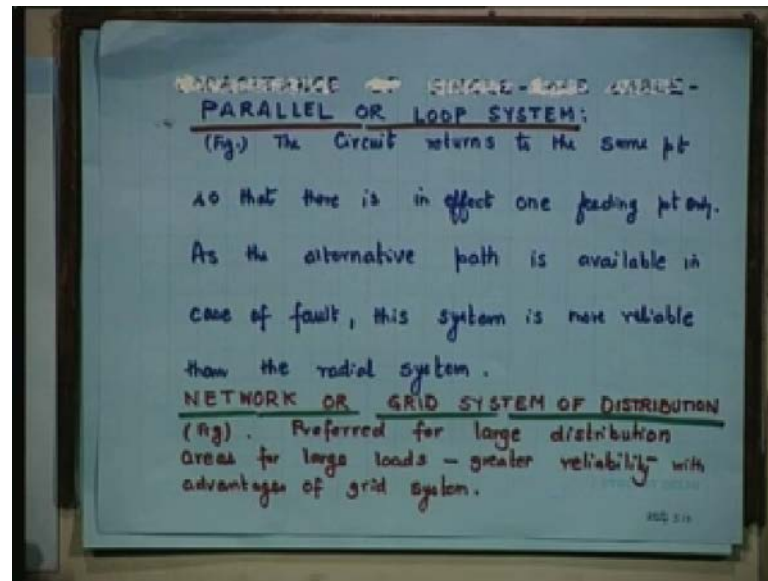 PARALLEL OR LOOP SYSTEM:
(Fig.) The Circuit returns to the same pt
so that there is in effect one feeding pt only.
As the alternative path is available in
case of fault, this system is more reliable
than the radial system.
NETWORK OR GRID SYSTEM OF DISTRIBUTION
(Fig). Preferred for large distribution
areas for large loads - greater reliability with
advantages of grid system.